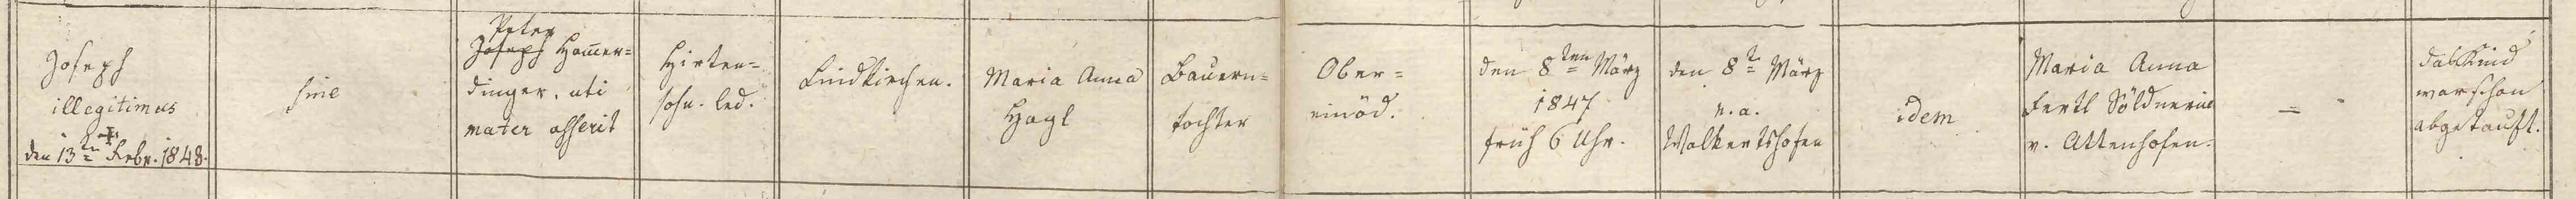 Joseph
illegitimus
✝
den 13tn Febr. 1848.
sine
Peter
Joseph Ham̅er=
dinger, uti
mater asserit
Hirten=
sohn. led.
Lindkirchen.
Maria Anna
Hagl
Bauern=
tochter
Ober=
einöd.
den 8ten März
1847
früh 6 Uhr.
den 8tn März
n. a.
Walkertshofen
idem
Maria Anna
Fertl Söldnerin
v. Attenhofen.
=
das Kind
war schon
abgetauft.